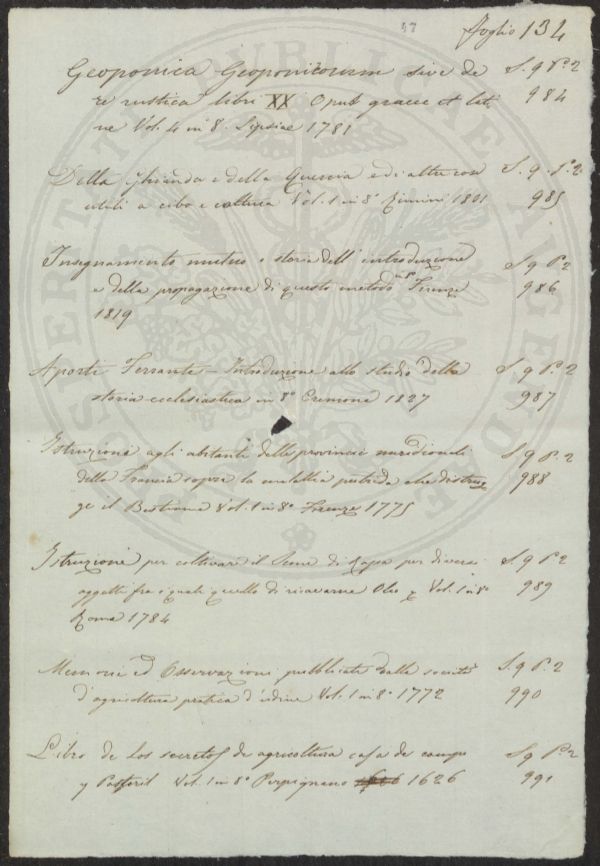 57
foglio 134
Geoponica Geoponicorum sive de S. 9 P. 2
re rustica libri XX Opub graece et lati 984
ne Vol. 4 in 8. Lipsiae 1781
Della ghianda e della Quercia ed altre cose S. 9. P. 2
utili a cibo e coltura Vol. 1 in 8° Rimini 1801 985
Insegnamento mutuo e storia dell'introduzione S. 9 P. 2
e della propagazione di questo metodo in 8° Firenze 986
1819
Aporti Ferrante - Introduzione allo studio della S. 9 P. 2
storia ecclesiastica in 8° Cremona 1827 987
Istruzioni agli abitanti delle provincie meridionali S. 9 P. 2
della Francia sopra la malattia putrida che distrug 988
ge il Bestiame Vol. 1 in 8° Firenze 1775
Istruzione per coltivare il Seme di Rapa per diversi S. 9 P. 2
oggetti fra i quali quello di ricavarne Olio Vol. 1 in 8° 989
Roma 1784
Memorie ed Osservazioni pubblicate dalla società S. 9 P. 2
d'agricoltura pratica d'Udine Vol. 1 in 8° 1772 990
Libro de los secretos de agricoltura casa de campo S. 9 P. 2
y Pastoril Vol. 1 in 8° Perpignano 1626 991